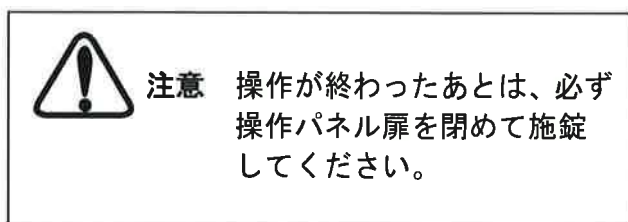 注意 操作が終わったあとは、必ず
操作パネル扉を閉めて施錠
してください。